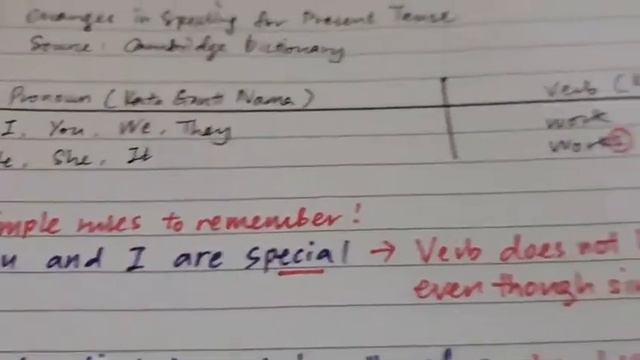 Changes in Spelling for Present Tense
Source: Cambridge Dictionary
Pronoun (Kata Ganti Nama) Verb (
I, You, We, They work
He, She, It works
imple rules to remember!
u and I are special → Verb does not
even though si